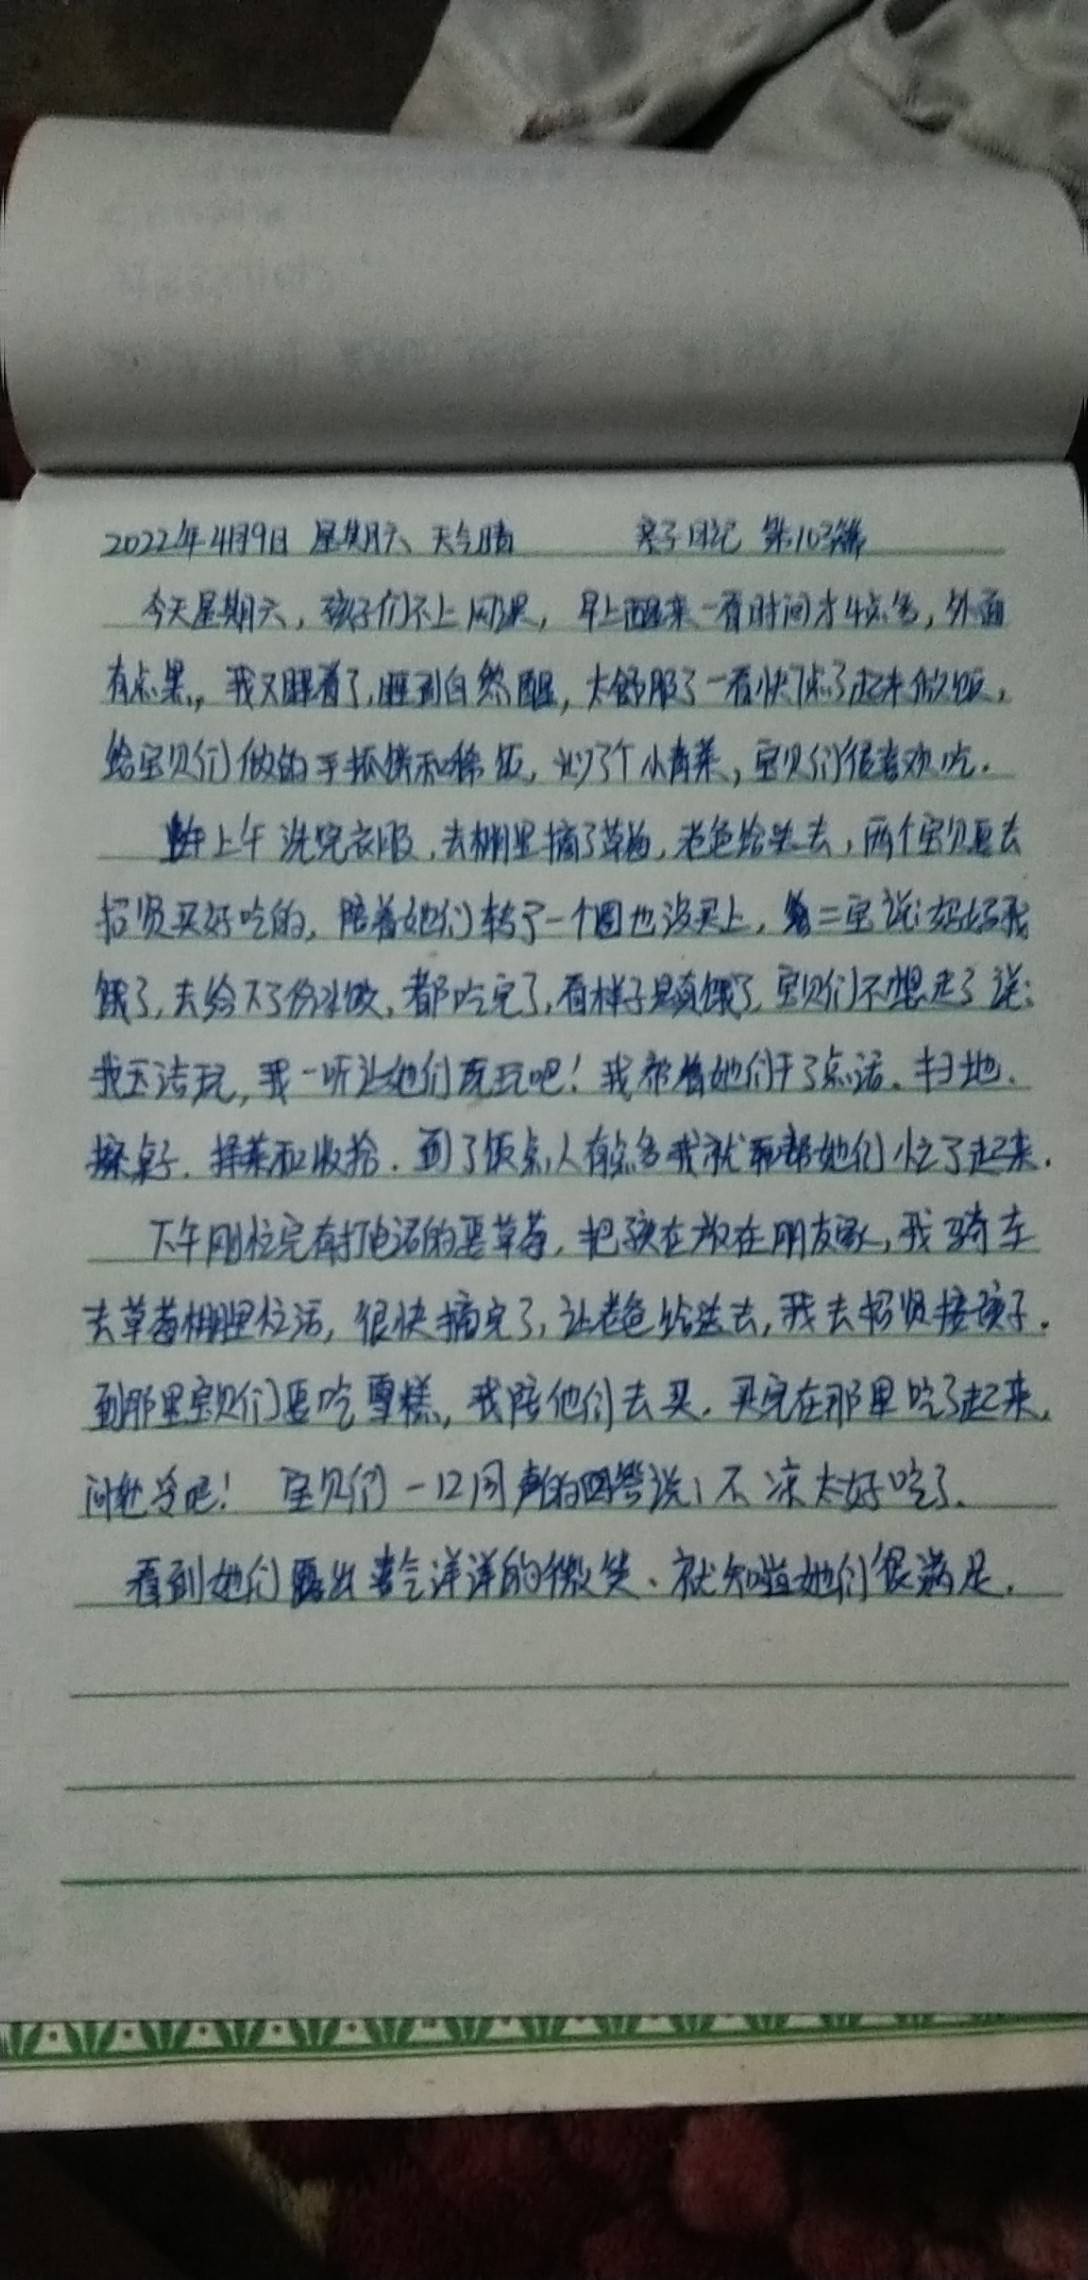 2022年4月9日 星期六 天气晴 亲子日记 第103篇
今天星期六，孩子们不上网课，早上醒来一看时间才4点多，外面
有点黑，我又睡着了，睡到自然醒，太舒服了一看快7点了起来做饭，
给宝贝们做的手抓饼和稀饭，炒了个小青菜，宝贝们很喜欢吃.
上午洗完衣服，去棚里摘了草莓，老爸给送去，两个宝贝要去
招贤买好吃的，陪着她们转了一个圈也没买上，二宝说：妈妈我
饿了，去给下了份水饺，都吃完了，看样子是真饿了，宝贝们不想走了说：
我一听让她们玩玩吧！我帮着她们干了点活。扫地、
擦桌子、择菜和收拾.到了饭点人有点多我就帮她们忙了起来.
下午刚忙完有打电话的要草莓，把孩在放在朋友家，我骑车
去草莓棚里忙活，很快摘完了，让老爸给送去，我去招贤接孩子.
到那里宝贝们要吃雪糕，我陪他们去买.买完在那里吃了起来，
问她冷吧！ 宝贝们一口同声的回答说：不凉太好吃了.
看到她们露出喜气洋洋的微笑、就知道她们很满足.